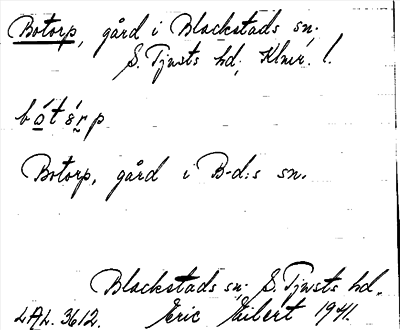 Botorp, gård i Blackstads sn.
S. Tjusts hd, Klmr. l.
bótórp
Botorp, gård i B-d:s sn.
Blackstads sn. S. Tjusts hd.
LAL. 3612. Eric Eibert 1941.